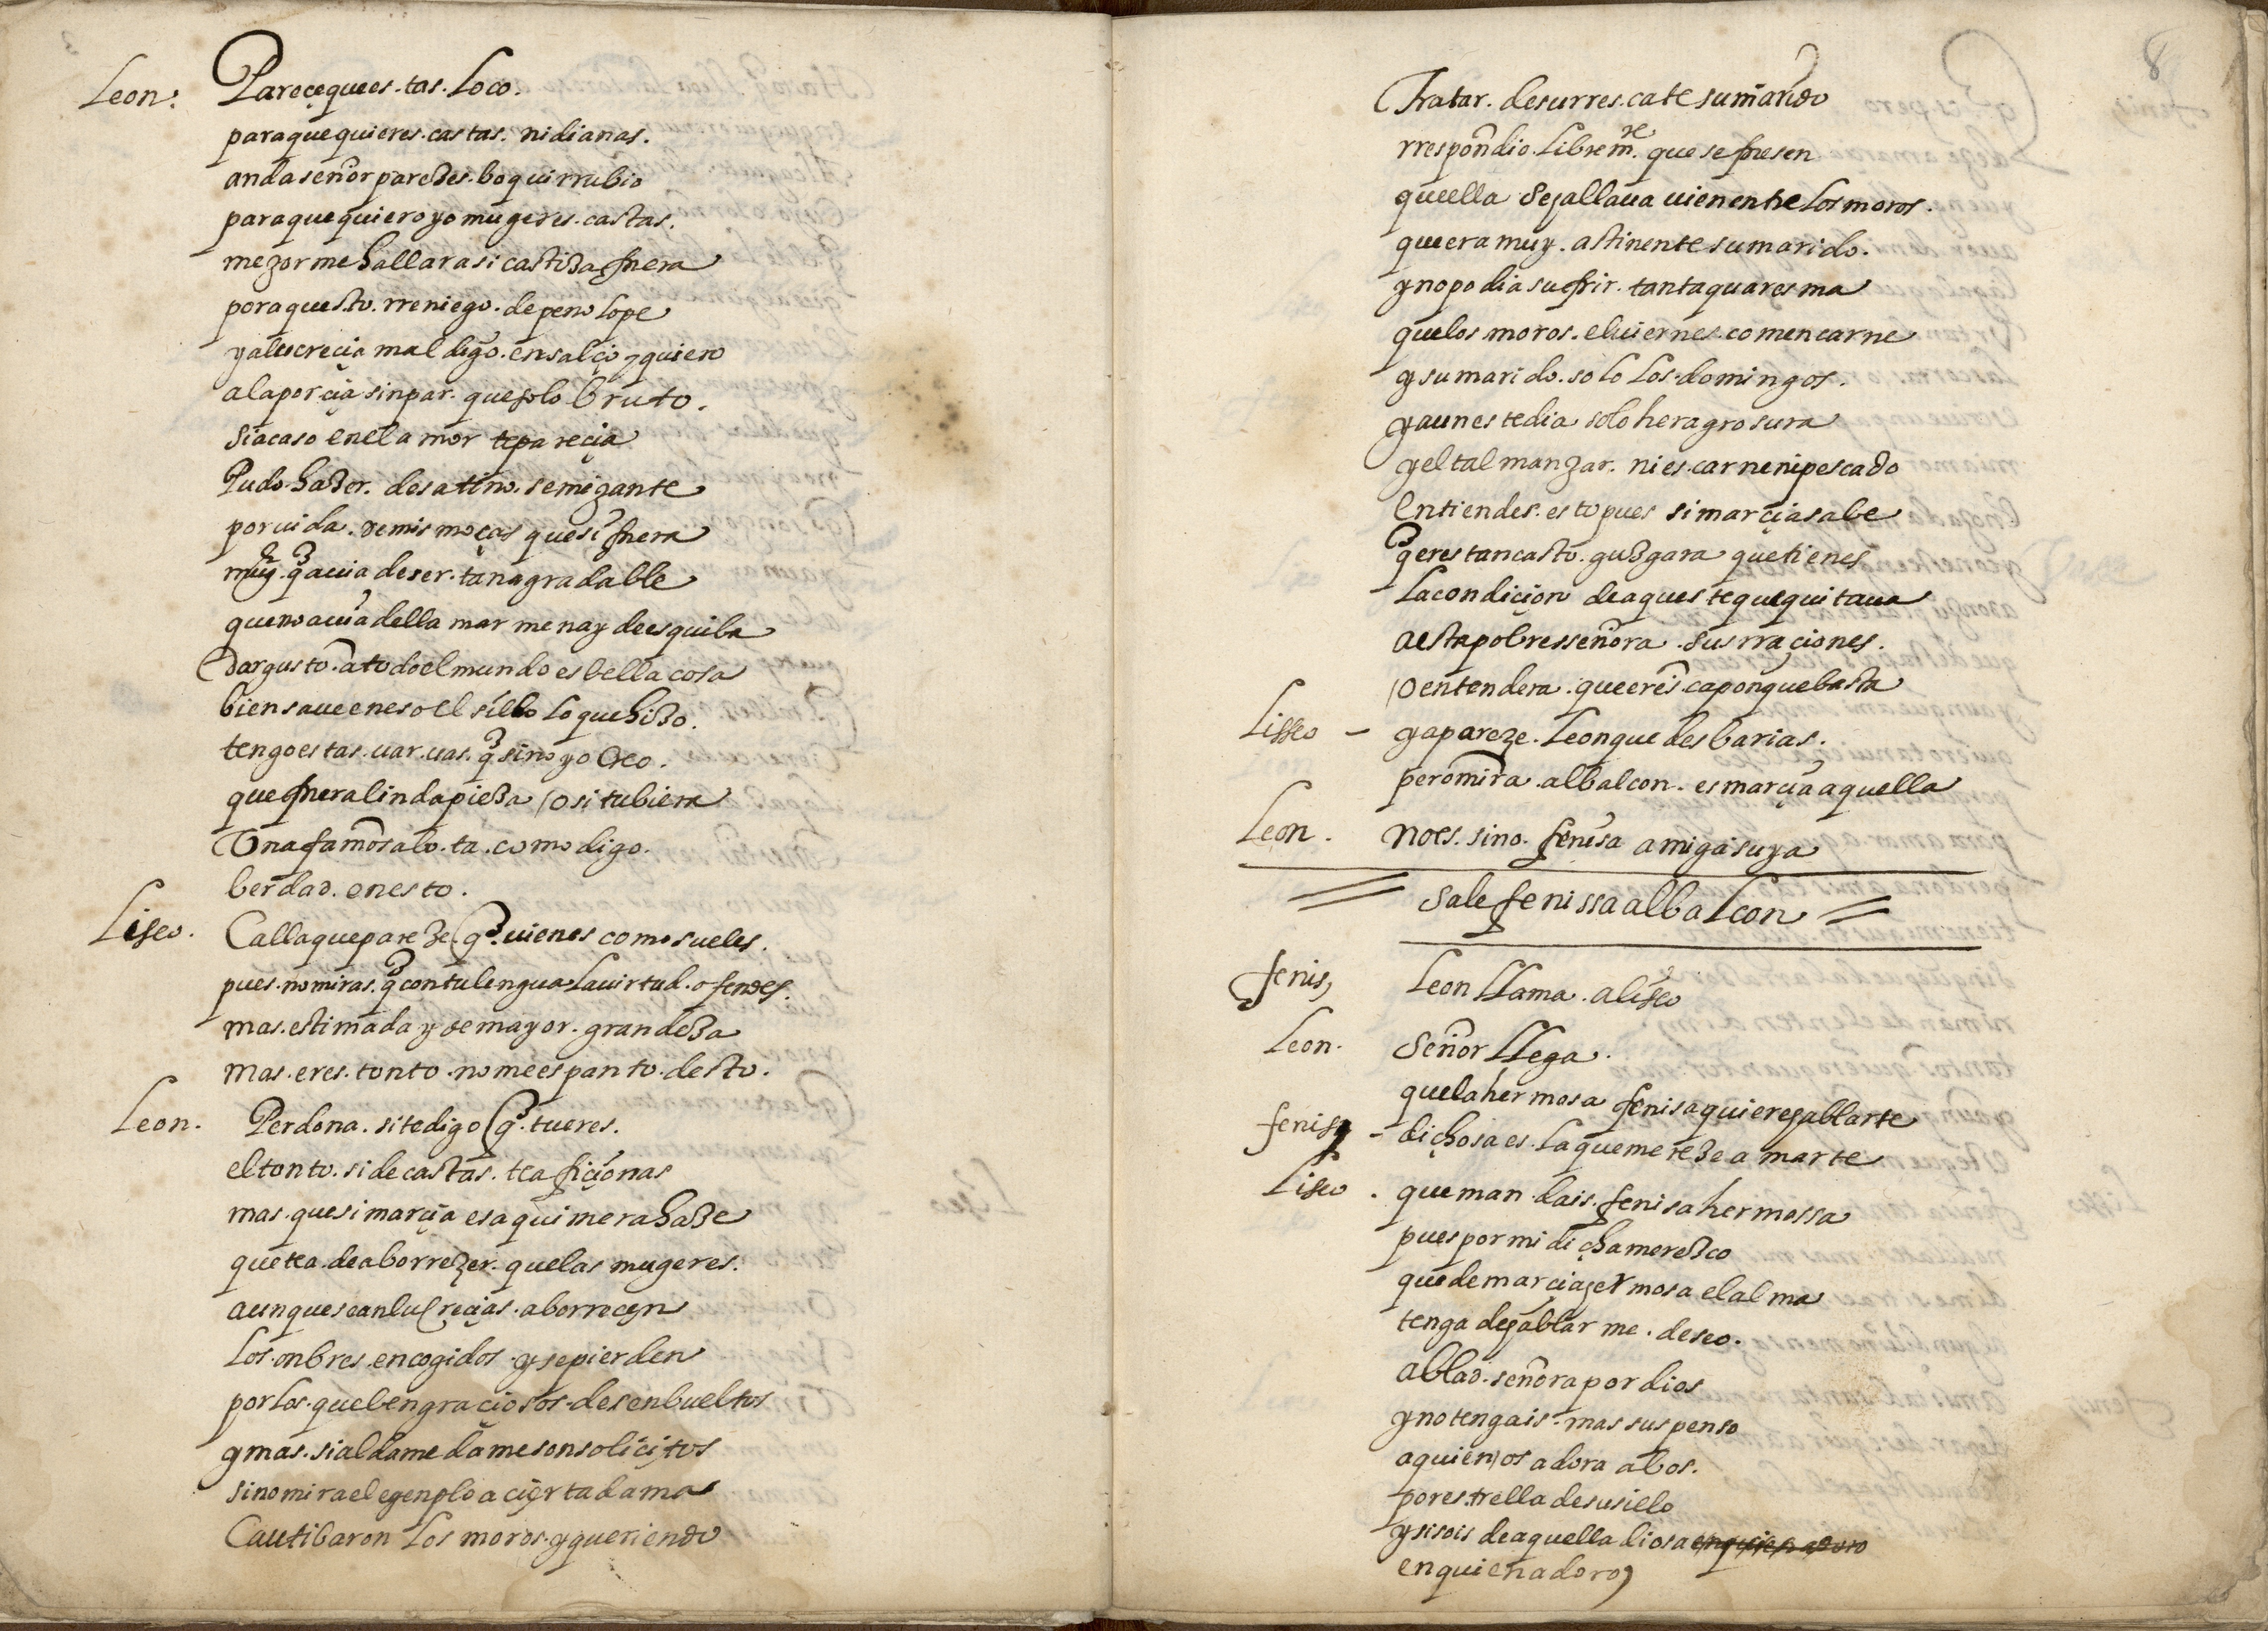 Leon: Pareçequees.tas. Loco.
paraquequieres.castas. nidianas.
andaseñor paredes. boquirrubio
paraquequieroyo mugeres.castas.
mezormehallarasi castiza fuera
poraquesto.rreniego.depenolope
yalucrecia mal digo.ensalço yquiero
alaporçia sinpar. quesolo bruto.
siacaso enel amor teparecia
Pudo.hazer. desatino.semizante
poruida.demis moças que si fuera
muy. q̃ auia deser.tanagradable
quenoauia della marmenay deesquiba
dargusto.atodoel mundo esbella cosa
biensaueeneso el silbo loquehizo.
tengoestas.uar.uas. q̃ sino yo creo.
quefueralindapieza /o situbiera
Vnafamosabo.ta.comodigo.
berdad. enesto.
Liseo. Callaquepareze. q̃.uienes comosueles.
pues.nomiras. q̃ contulengua Lauirtud.ofendes.
mas.estimada y demayor.grandeza
mas.eres.tonto.nomeespanto.desto.
Leon. Perdona.sitedigo q̃.tueres.
eltonto.sidecastas.teaficionas
mas.quesimarçia esaquimerahaze
quetea.deaborrezer.quelas mugeres.
aunqueseanlucreçias.aborrecen
Los.onbres.encogidos.ysepierden
porlos.quebengraçiosos.desenbueltos
ymas.sialdamedamesonsoliçitos
sinomiraelegenplo açiertadama
Cautibaron Los moros.yqueriendo
8
Tratar.desurres.catesumarido
rrespondio.Librem.te quesefuesen
queella sejallaua uienentre Los moros.
queeramuy.astinentesumarido.
ynopodiasufrir.tantaquaresma
quelos moros.eluiernes.comencarne
ysumarido.solo Los.domingos.
yaunestedia soloheragrosura
yeltalmanzar.nies.carnenipescado
Entiendes.estopues simarçiasabe
q̃ erestancasto.guzgara quetienes
Lacondiçion deaquestequequitaua
aestapobresseñora.susrraçiones.
/oentendera.queeres.caponquebasta
Lisseo - yapareze.Leonque desbarias.
peromira.albalcon.esmarçiaaquella
Leon. noes.sino.fenisa amigasuya
Sale fenissaalbalcon
fenis, Leon LLama.aliseo
Leon. Señor LLega.
quelahermosa fenisaquierejablarte
fenisa - dichosaes.Laquemerezeamarte
Liseo. queman.dais.fenisahermossa
puespormi dichamerezco
quedemarciajermosa elalma
tenga dejablarme.deseo.
ablad.señorapordios
ynotengais.massuspenso
aquien/os adora abos.
porestrella desusielo
ysisois deaquella diosa enquienadoro
enquienadoro,